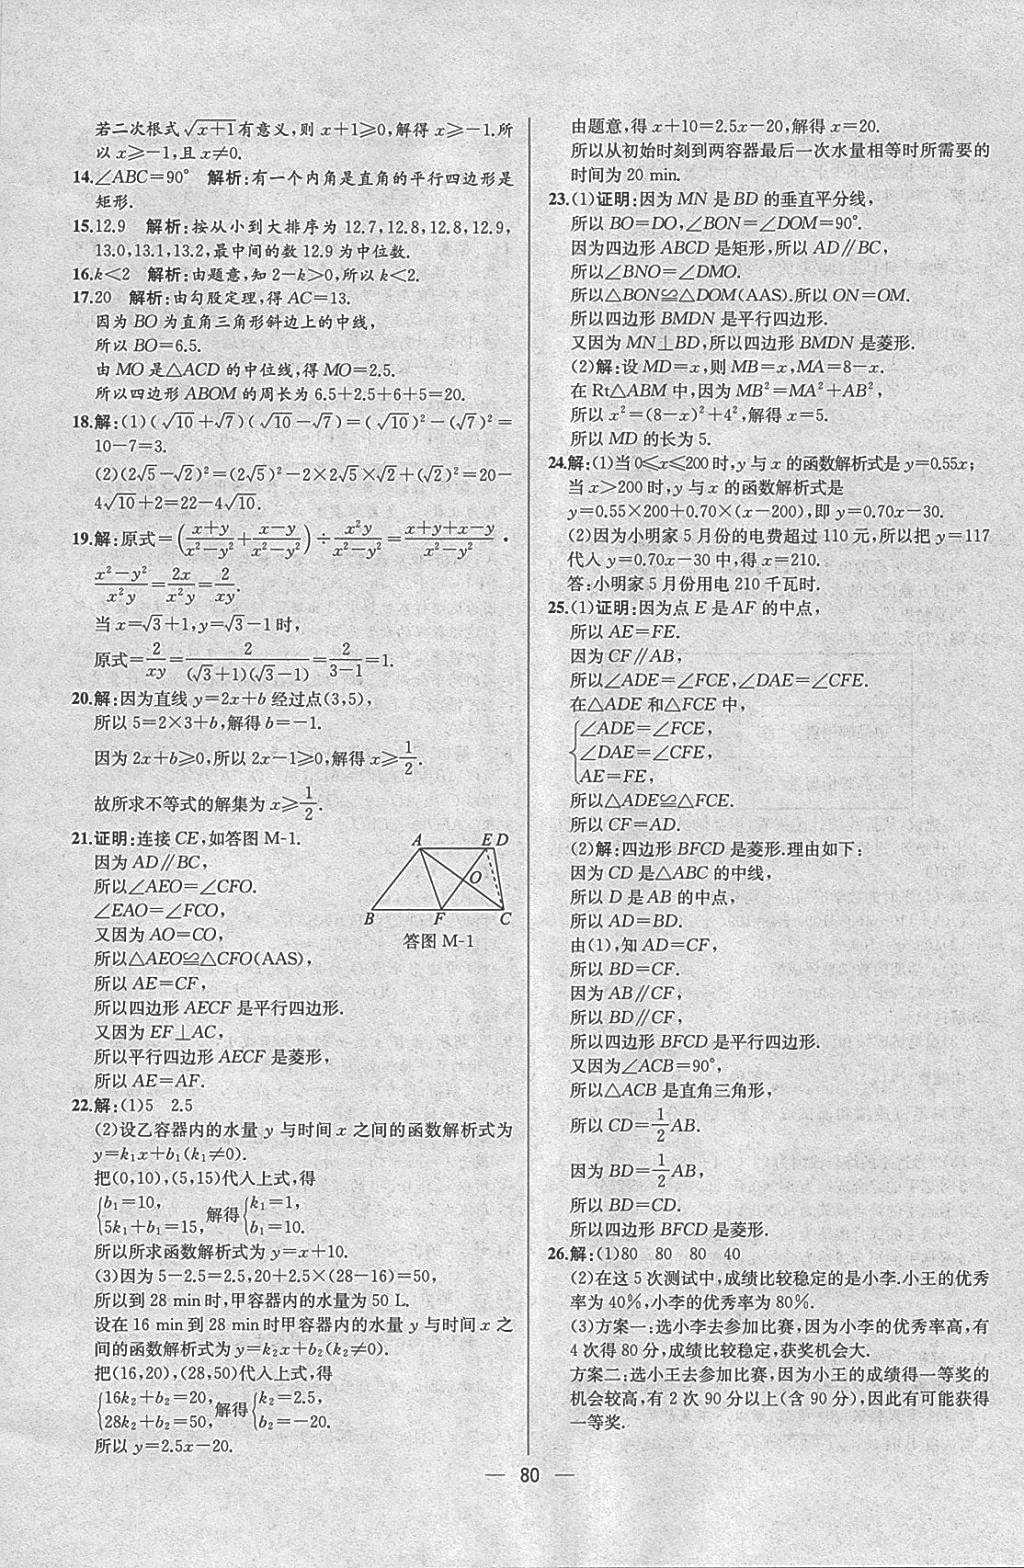 若二次根式√(x+1)有意义,则 x+1⩾0,解得 x⩾-1.所
以 x⩾-1,且 x≠0.
14.∠ABC=90° 解析:有一个内角是直角的平行四边形是
矩形.
15.12.9 解析:按从小到大排序为 12.7,12.8,12.8,12.9,
13.0,13.1,13.2,最中间的数 12.9 为中位数.
16.k<2 解析:由题意,知 2-k>0,所以 k<2.
17.20 解析:由勾股定理,得 AC=13.
因为 BO 为直角三角形斜边上的中线,
所以 BO=6.5.
由 MO 是△ACD 的中位线,得 MO=2.5.
所以四边形 ABOM 的周长为 6.5+2.5+6+5=20.
18.解:(1)(√10+√7)(√10-√7)=(√10)²-(√7)²=
10-7=3.
(2)(2√5-√2)²=(2√5)²-2×2√5×√2+(√2)²=20-
4√10+2=22-4√10.
19.解:原式=((x+y)/(x²-y²)+(x-y)/(x²-y²))÷x²y/(x²-y²)=(x+y+x-y)/(x²-y²)·
(x²-y²)/x²y=2x/x²y=2/xy.
当 x=√3+1,y=√3-1 时,
原式=2/xy=2/((√3+1)(√3-1))=2/(3-1)=1.
20.解:因为直线 y=2x+b 经过点(3,5),
所以 5=2×3+b,解得 b=-1.
因为 2x+b⩾0,所以 2x-1⩾0,解得 x⩾1/2.
故所求不等式的解集为 x⩾1/2.
21.证明:连接 CE,如答图 M-1.
因为 AD∥BC,
所以∠AEO=∠CFO.
∠EAO=∠FCO,
又因为 AO=CO,
所以△AEO≌△CFO(AAS),
所以 AE=CF,
所以四边形 AECF 是平行四边形.
又因为 EF⊥AC,
所以平行四边形 AECF 是菱形,
所以 AE=AF.
A E D
O
B F C
答图 M-1
22.解:(1)5 2.5
(2)设乙容器内的水量 y 与时间 x 之间的函数解析式为
y=k₁x+b₁(k₁≠0).
把(0,10),(5,15)代入上式,得
{b₁=10, 5k₁+b₁=15, 解得{k₁=1, b₁=10.
所以所求函数解析式为 y=x+10.
(3)因为 5-2.5=2.5,20+2.5×(28-16)=50,
所以到 28 min 时,甲容器内的水量为 50 L.
设在 16 min 到 28 min 时甲容器内的水量 y 与时间 x 之
间的函数解析式为 y=k₂x+b₂(k₂≠0).
把(16,20),(28,50)代入上式,得
{16k₂+b₂=20, 28k₂+b₂=50, 解得{k₂=2.5, b₂=-20.
所以 y=2.5x-20.
由题意,得 x+10=2.5x-20,解得 x=20.
所以从初始时刻到两容器最后一次水量相等时所需要的
时间为 20 min.
23.(1)证明:因为 MN 是 BD 的垂直平分线,
所以 BO=DO,∠BON=∠DOM=90°.
因为四边形 ABCD 是矩形,所以 AD∥BC,
所以∠BNO=∠DMO.
所以△BON≌△DOM(AAS).所以 ON=OM.
所以四边形 BMDN 是平行四边形.
又因为 MN⊥BD,所以四边形 BMDN 是菱形.
(2)解:设 MD=x,则 MB=x,MA=8-x.
在 Rt△ABM 中,因为 MB²=MA²+AB²,
所以 x²=(8-x)²+4²,解得 x=5.
所以 MD 的长为 5.
24.解:(1)当 0⩽x⩽200 时,y 与 x 的函数解析式是 y=0.55x;
当 x>200 时,y 与 x 的函数解析式是
y=0.55×200+0.70×(x-200),即 y=0.70x-30.
(2)因为小明家 5 月份的电费超过 110 元,所以把 y=117
代入 y=0.70x-30 中,得 x=210.
答:小明家 5 月份用电 210 千瓦时.
25.(1)证明:因为点 E 是 AF 的中点,
所以 AE=FE.
因为 CF∥AB,
所以∠ADE=∠FCE,∠DAE=∠CFE.
在△ADE 和△FCE 中,
{∠ADE=∠FCE,
∠DAE=∠CFE,
AE=FE,
所以△ADE≌△FCE.
所以 CF=AD.
(2)解:四边形 BFCD 是菱形.理由如下:
因为 CD 是△ABC 的中线,
所以 D 是 AB 的中点,
所以 AD=BD.
由(1),知 AD=CF,
所以 BD=CF.
因为 AB∥CF,
所以 BD∥CF,
所以四边形 BFCD 是平行四边形.
又因为∠ACB=90°,
所以△ACB 是直角三角形,
所以 CD=1/2AB.
因为 BD=1/2AB,
所以 BD=CD.
所以四边形 BFCD 是菱形.
26.解:(1)80 80 80 40
(2)在这 5 次测试中,成绩比较稳定的是小李.小王的优秀
率为 40%,小李的优秀率为 80%.
(3)方案一:选小李去参加比赛,因为小李的优秀率高,有
4 次得 80 分,成绩比较稳定,获奖机会大.
方案二:选小王去参加比赛,因为小王的成绩得一等奖的
机会较高,有 2 次 90 分以上(含 90 分),因此有可能获得
一等奖.
— 80 —